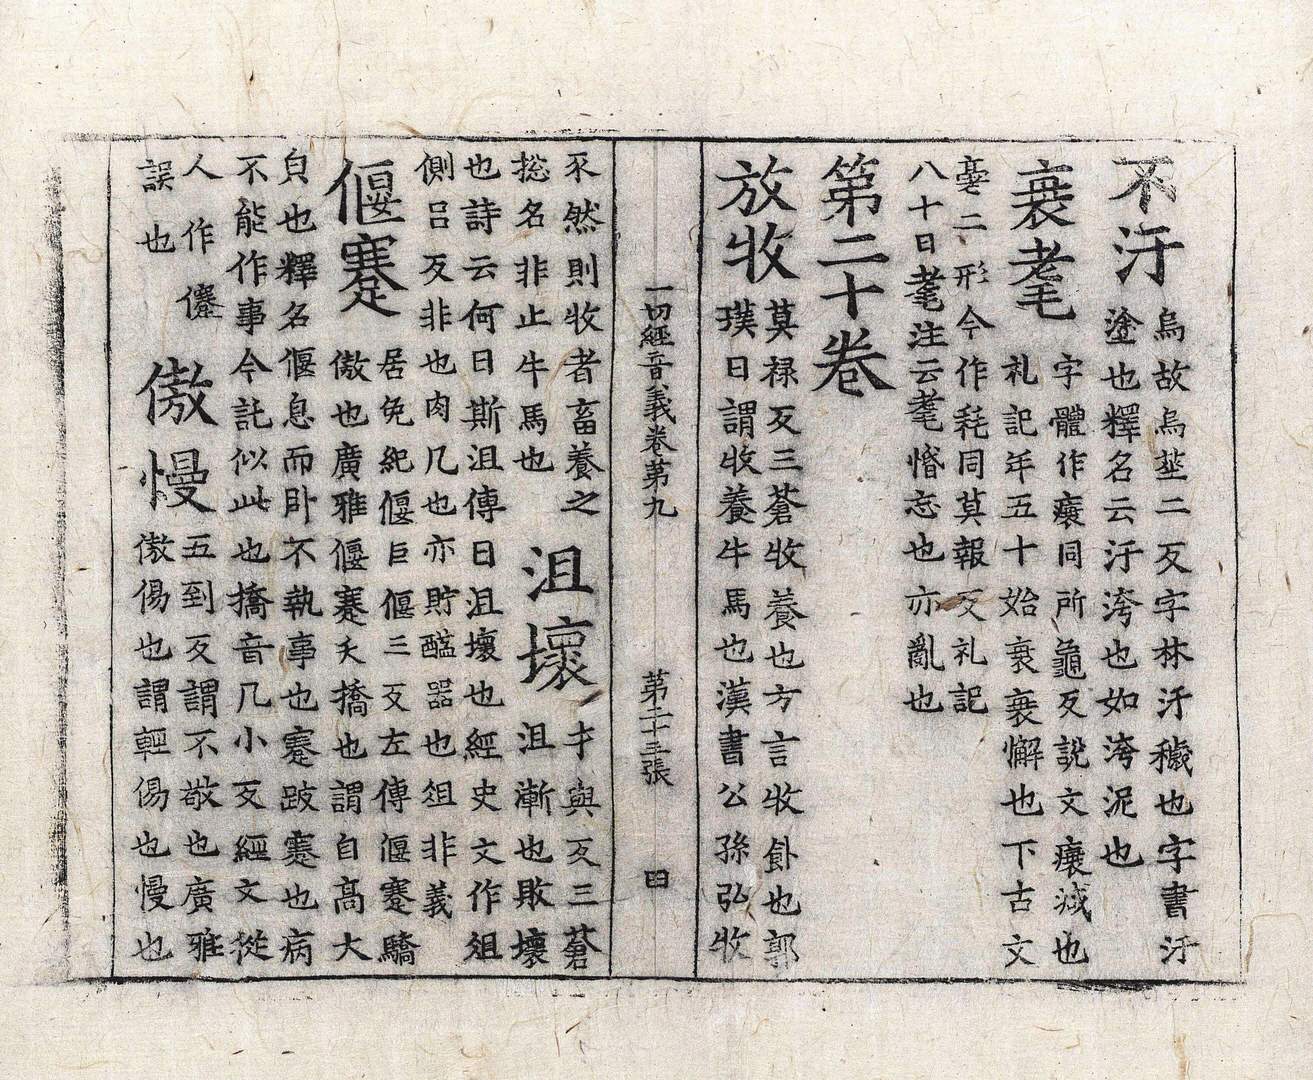 不汙 烏故烏莝二反字林汙穢也字書汙
塗也釋名云汙洿也如洿泥也
衰耄 字體作㾁同所龜反說文㾁減也
礼記年五十始衰衰懈也下古文
二形今作耗同莫報反礼記
八十曰耄注云耄惛忘也亦亂也
第二十卷
放牧 莫禄反三蒼牧養也方言牧飤也郭
璞曰謂牧養牛馬也漢書公孫弘牧
一切經音義卷第九 第二十三張
豕然則牧者畜養之
捴名非止牛馬也
沮壞 才與反三蒼
沮漸也敗壞
也詩云何日斯沮傳曰沮壞也經史文作俎
側呂反非也肉几也亦貯醢器也俎非義
偃蹇 居免紀偃巨偃三反左傳偃蹇驕
傲也廣雅偃蹇夭撟也謂自高大
㒵也釋名偃息而卧不執事也蹇跛蹇也病
不能作事今託似此也撟音几小反經文從
人作㒕
誤也
傲慢 五到反謂不敬也廣雅
傲㑥也謂輕㑥也慢也